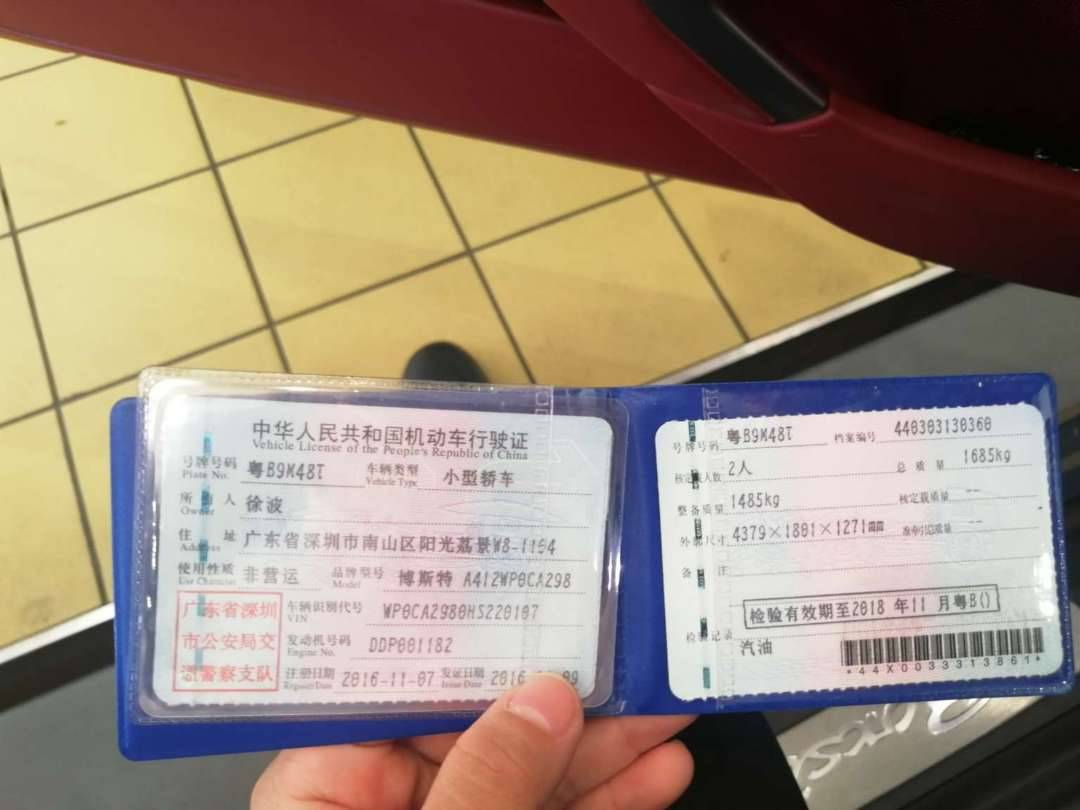 中华人民共和国机动车行驶证
Vehicle License of the People's Republic of China
号牌号码 粤B9M48T 车辆类型 小型轿车
Plate No. Vehicle Type
所有人 徐波
Owner
住址 广东省深圳市南山区阳光荔景W8-1104
Address
使用性质 非营运 品牌型号 博斯特 A412WP0CA298
Use Character Model
广东省深圳
市公安局交
通警察支队
车辆识别代号 WP0CA2980HS220107
VIN
发动机号码 DDP001182
Engine No.
注册日期 2016-11-07 发证日期 2016
Register Date Issue Date
号牌号码 粤B9M48T 档案编号 440303130360
核定载人数 2人 总质量 1685kg
整备质量 1485kg 核定载质量 --
外廓尺寸 4379×1801×1271mm 准牵引总质量 --
备注
检验有效期至2018 年11 月粤B()
检验记录
汽油
*44X0033313861*